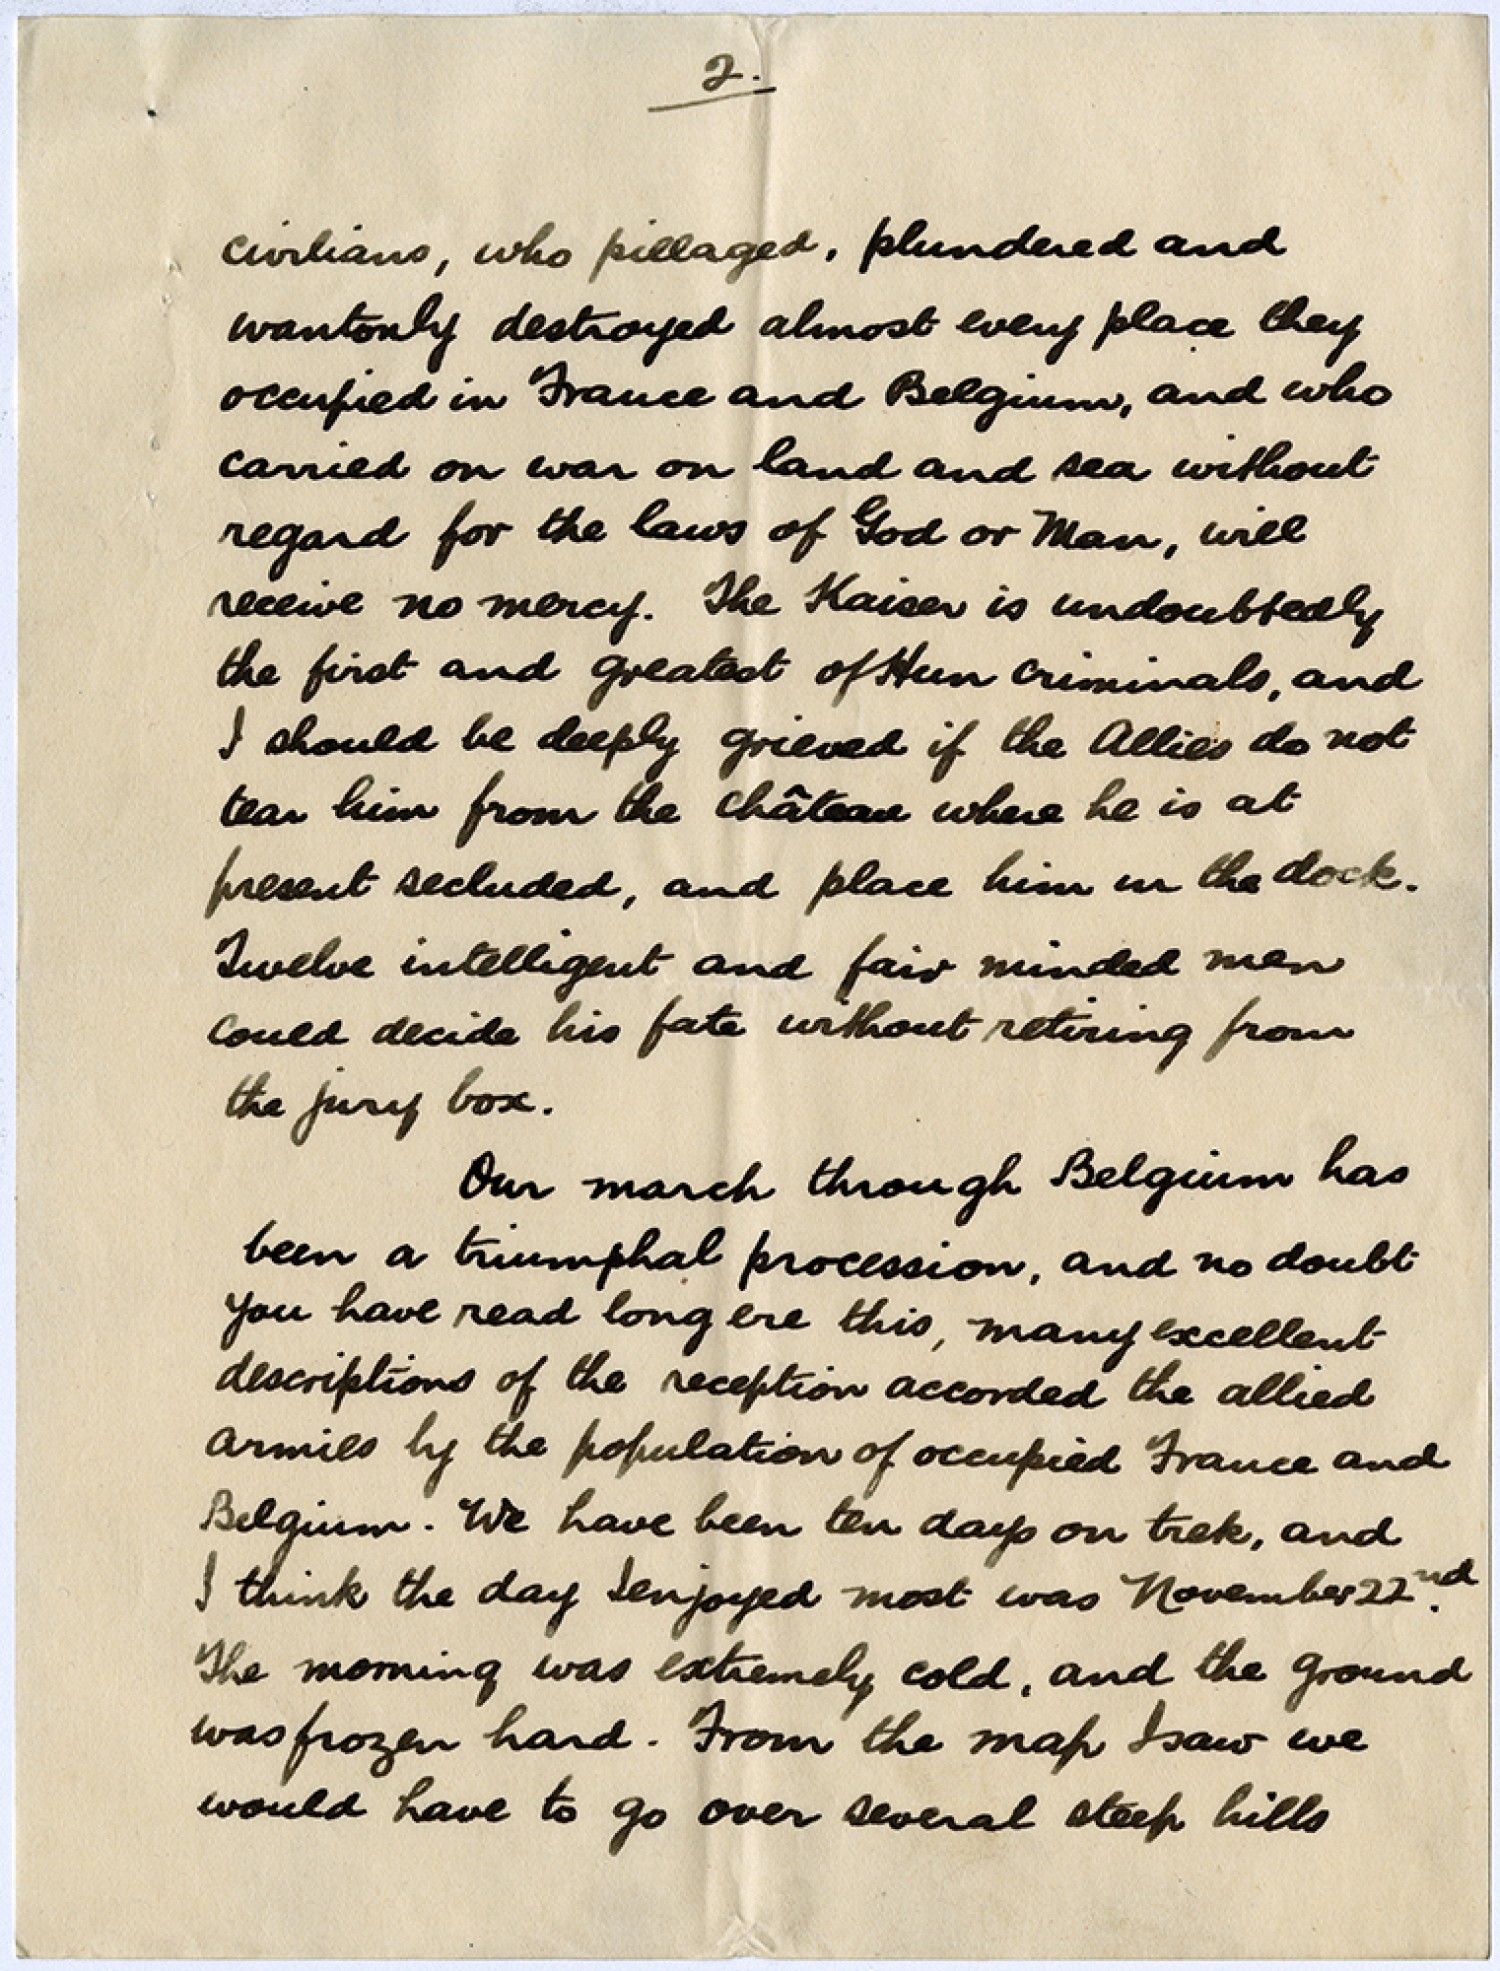 2.
civilians, who pillaged, plundered and
wantonly destroyed almost every place they
occupied in France and Belgium, and who
carried on war on land and sea without
regard for the laws of God or Man, will
receive no mercy. The Kaiser is undoubtedly
the first and greatest of Hun criminals, and
I should be deeply grieved if the Allies do not
tear him from the château where he is at
present secluded, and place him in the dock.
Twelve intelligent and fair minded men
could decide his fate without retiring from
the jury box.
Our march through Belgium has
been a triumphal procession, and no doubt
you have read long ere this, many excellent
descriptions of the reception accorded the allied
armies by the population of occupied France and
Belgium. We have been ten days on trek, and
I think the day I enjoyed most was November 22nd.
The morning was extremely cold, and the ground
was frozen hard. From the map I saw we
would have to go over several steep hills